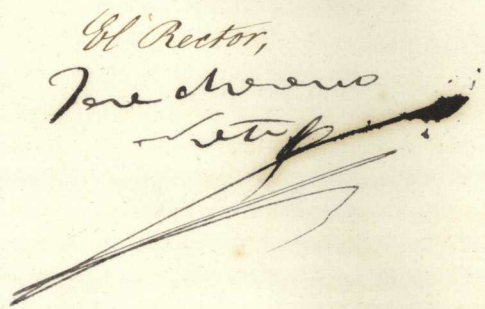 El Rector,
Jose Moreno
Nieto